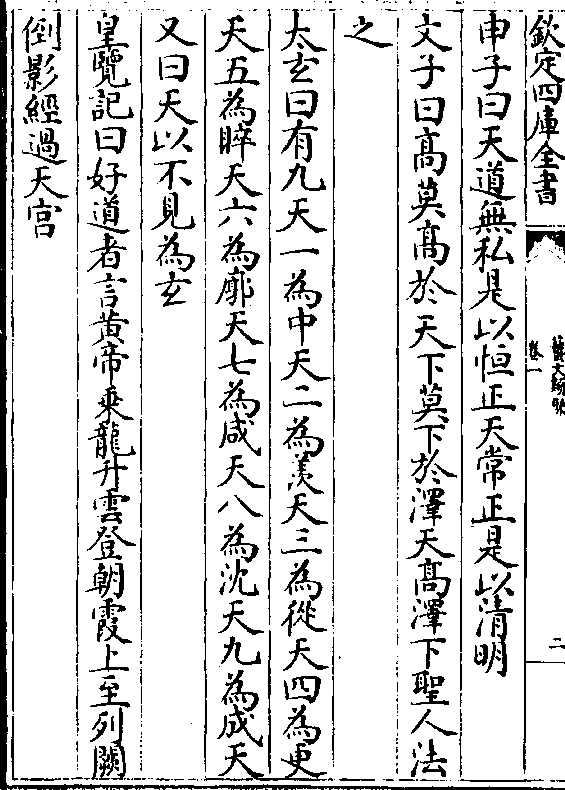 欽定四庫全書
藝文類聚
卷一
二
申子曰天道無私是以恒正天常正是以清明
文子曰髙莫髙於天下莫下於澤天髙澤下聖人法
之
太𤣥曰有九天一為中天二為羡天三為從天四為更
天五為睟天六為廓天七為咸天八為沈天九為成天
又曰天以不見為𤣥
皇覽記曰好道者言黄帝乗龍升雲登朝霞上至列闕
倒影經過天宫